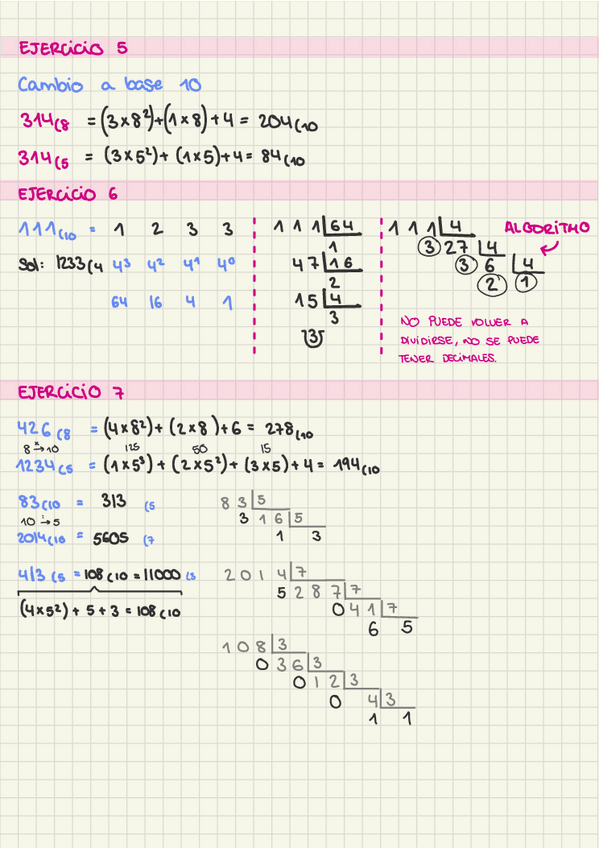 EJERCICIO 5
Cambio a base 10
314(8 = (3x8²)+(1x8)+4 = 204(10
314(5 = (3x5²)+(1x5)+4 = 84(10
EJERCICIO 6
111(10 = 1 2 3 3
Sol: 1233(4 4³ 4² 4¹ 4⁰
64 16 4 1
111 64
1
47 16
2
15 4
3
3
111 4
3 27 4
3 6 4
2 1
ALGORITMO
NO PUEDE VOLVER A
DIVIDIRSE, NO SE PUEDE
TENER DECIMALES.
EJERCICIO 7
426(8 = (4x8²)+(2x8)+6 = 278(10
8 → 10 125 50 15
1234(5 = (1x5³)+(2x5²)+(3x5)+4 = 194(10
83(10 = 313 (5
10 → 5
2014(10 = 5605 (7
413(5 = 108(10 = 11000(3
(4x5²)+5+3 = 108(10
83 5
3 16 5
1 3
2014 7
5 287 7
0 41 7
6 5
108 3
0 36 3
0 12 3
0 4 3
1 1